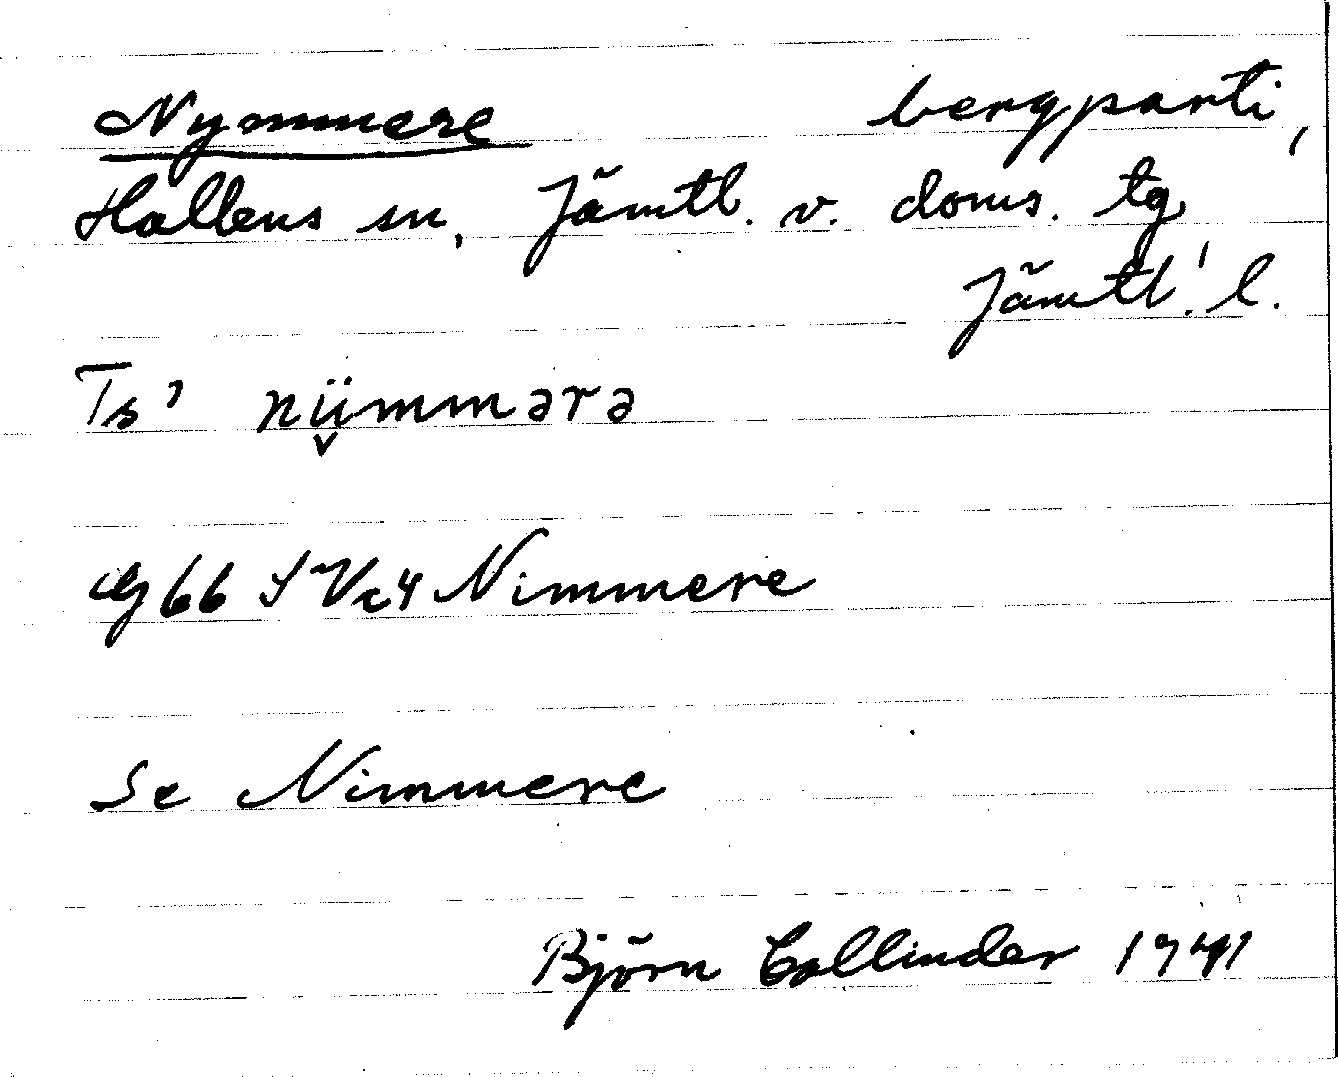 Nymmere bergparti,
Hallens sn, Jämtl. v. doms. tg
Jämtl! l.
Ts' nṳ̈mmərə
Nimmere
Se Nimmere
Björn Collinder 1941